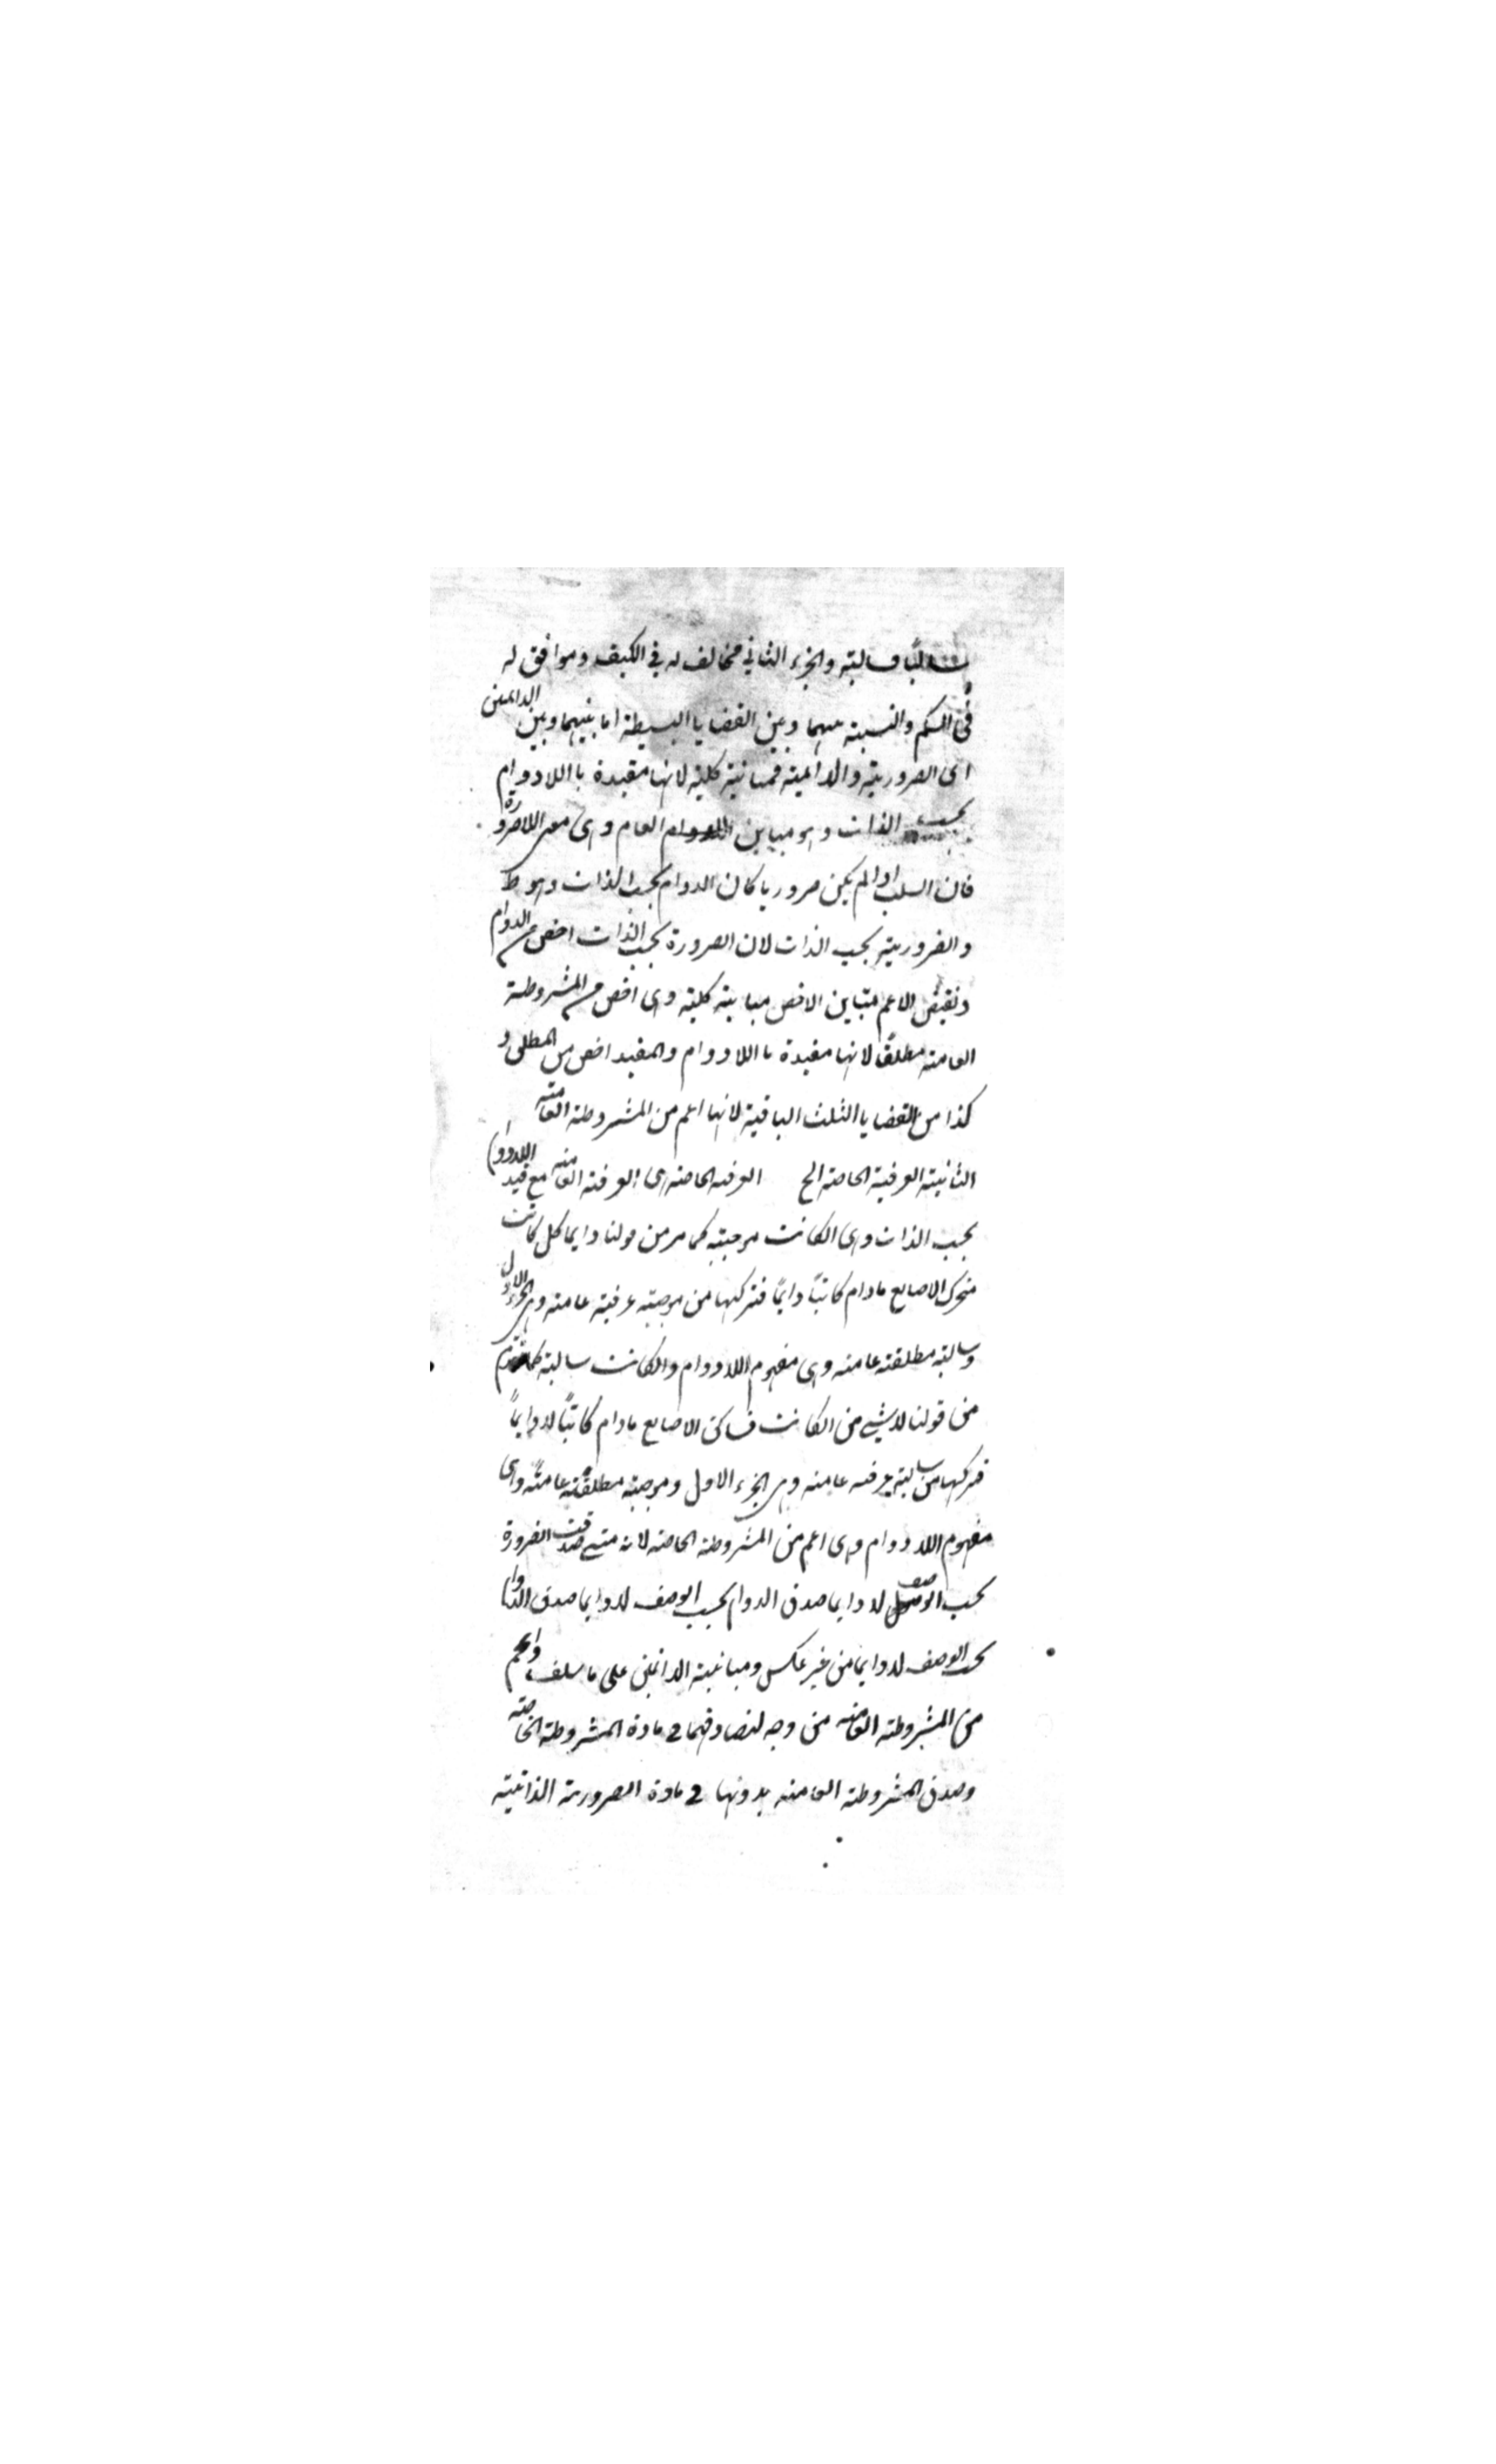 سالبا فسالبته والجزء الثاني مخالف له في الكيف وموافق له
في الكم والنسبته بينهما وبين القضايا البسيطة اما بينهما وبين الدائمتين
اى الضروريته والدائميته فمباينة كليته لانها مقيدة با اللادوام
بحسب الذات وهو مباين للدوام العام وهى مع اللاضرورة
فان السلب اذا لم يكن ضروريا كان الدوام بحسب الذات وهو
والضروريته بحسب الذات لان الضرورة بحسب الذات اخص من الدوام
ونقيض الاعم متباين الاخص مباينته كليته وهى اخص من المشروطة
العامته مطلقا لانها مقيدة با اللادوام والمقيد اخص من المطلق و
كذا من القضايا الثلث الباقية لانها اعم من المشروطته العامته
الثانيته العرفية الخاصته الخ العرفيه الخاصته هى العرفيته العامته مع قيد اللادوام
بحسب الذات وهى ان كانت موجبته كما مر من قولنا دايما كل كاتب
متحرك الاصابع مادام كاتباً دايماً فتركبها من موجبته عرفيته عامته وهى الجزء الاول
وسالبته مطلقته عامته وهى مفهوم اللادوام وان كانت سالبته كما تقدم
من قولنا لاشيء من الكاتب ساكن الاصابع مادام كاتباً لادايماً
فتركبها من سالبته عرفيه عامته وهى الجزء الاول وموجبته مطلقته عامتة وهى
مفهوم اللادوام وهى اعم من المشروطته الخاصته لانه متى صدقت الضرورة
بحسب الوصف لادايما صدق الدوام بحسب الوصف لادوايما صدق الدوام
بحسب الوصف لادوايما من غير عكس ومباينية الدائمتين على ما سلف واعم
من المشروطته العامته من وجه لتصادقهما في مادة المشروطته الخاصته
وصدق المشروطته العامته بدونها في مادة الضروريته الذاتيته